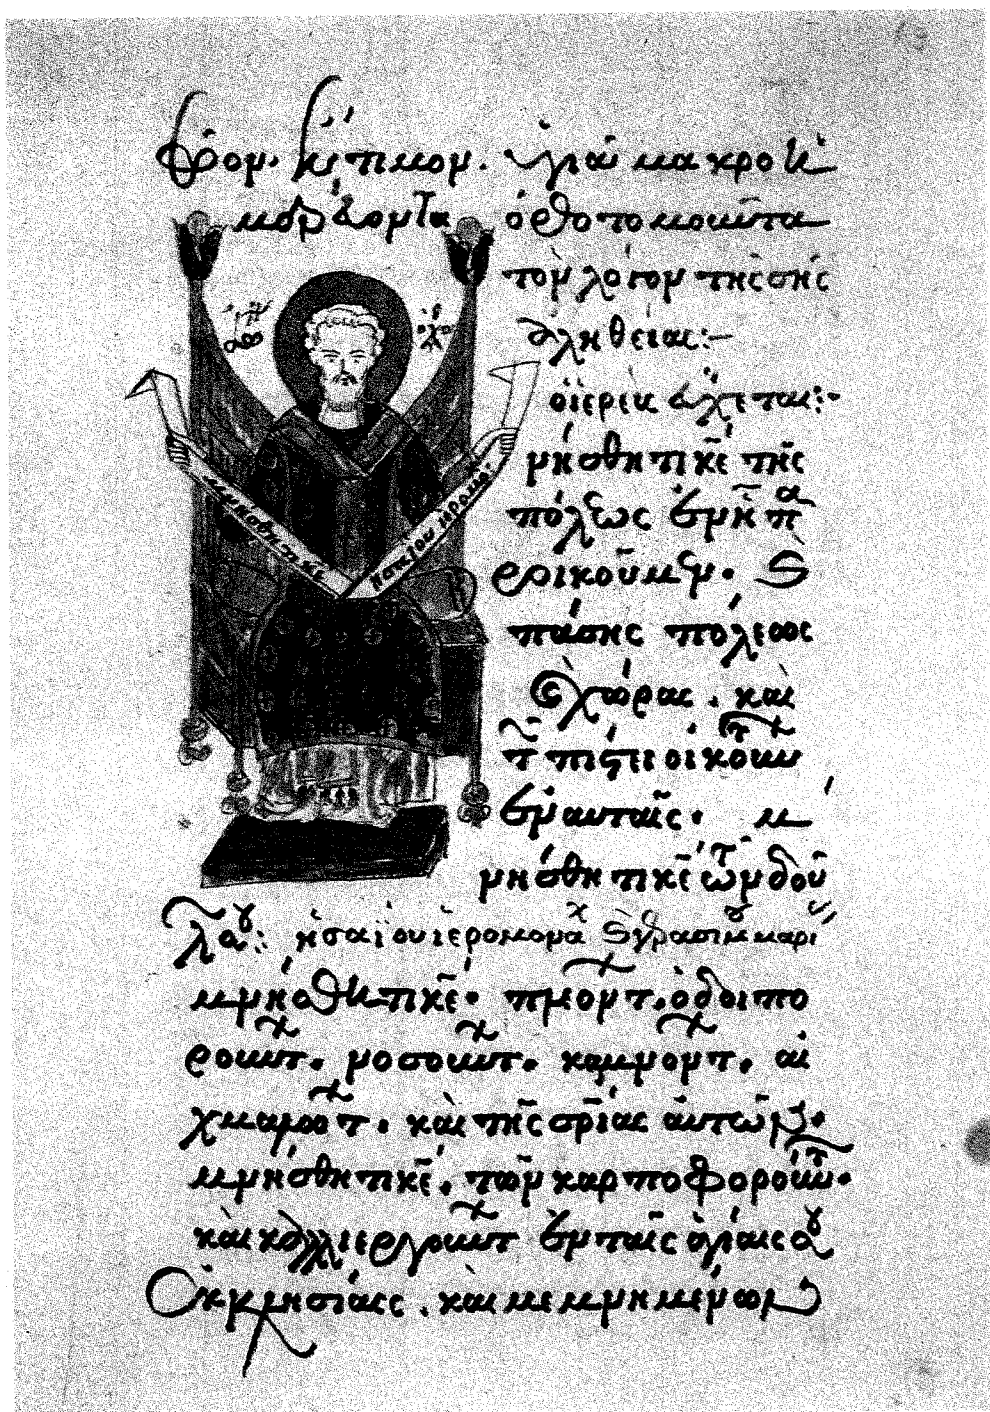 σῶον. ἔντιμον. ὑγιᾶ μακροη
μερεύοντα ὀρθοτομοῦντα
τὸν λόγον τῆς σῆς
ἀληθείας:~
ὁ ἱερεὺς εὔχεται:~
μνήσθητι κ̅ε̅ τῆς
πόλεως ἐν ἧ πα
ροικοῦμεν. ϛ
πάσης πόλεως
χώρας. καὶ
τ πίστει οἰκούντ
ἐν αὐταῖς.
μνήσθητι κ̅ε̅ τῶν δού
λων σου: ἡσαΐου ἱερομονάχ ϛ
μνήσθητι κ̅ε̅. πλεόντ. ὁδοιπο
ρούντ. νοσούντ. καμνόντ. αἰ
χμαλώτ. καὶ τῆς σρίας αὐτῶν.
μνήσθητι κ̅ε̅. τῶν καρποφορούντ.
καὶ καλλιεργούντ ἐν ταῖς ἁγίαις σου
ἐκκλησίαις. καὶ μεμνημένων
μνήσθητι κ̅ε̅
ἡσαΐου ἱερομο